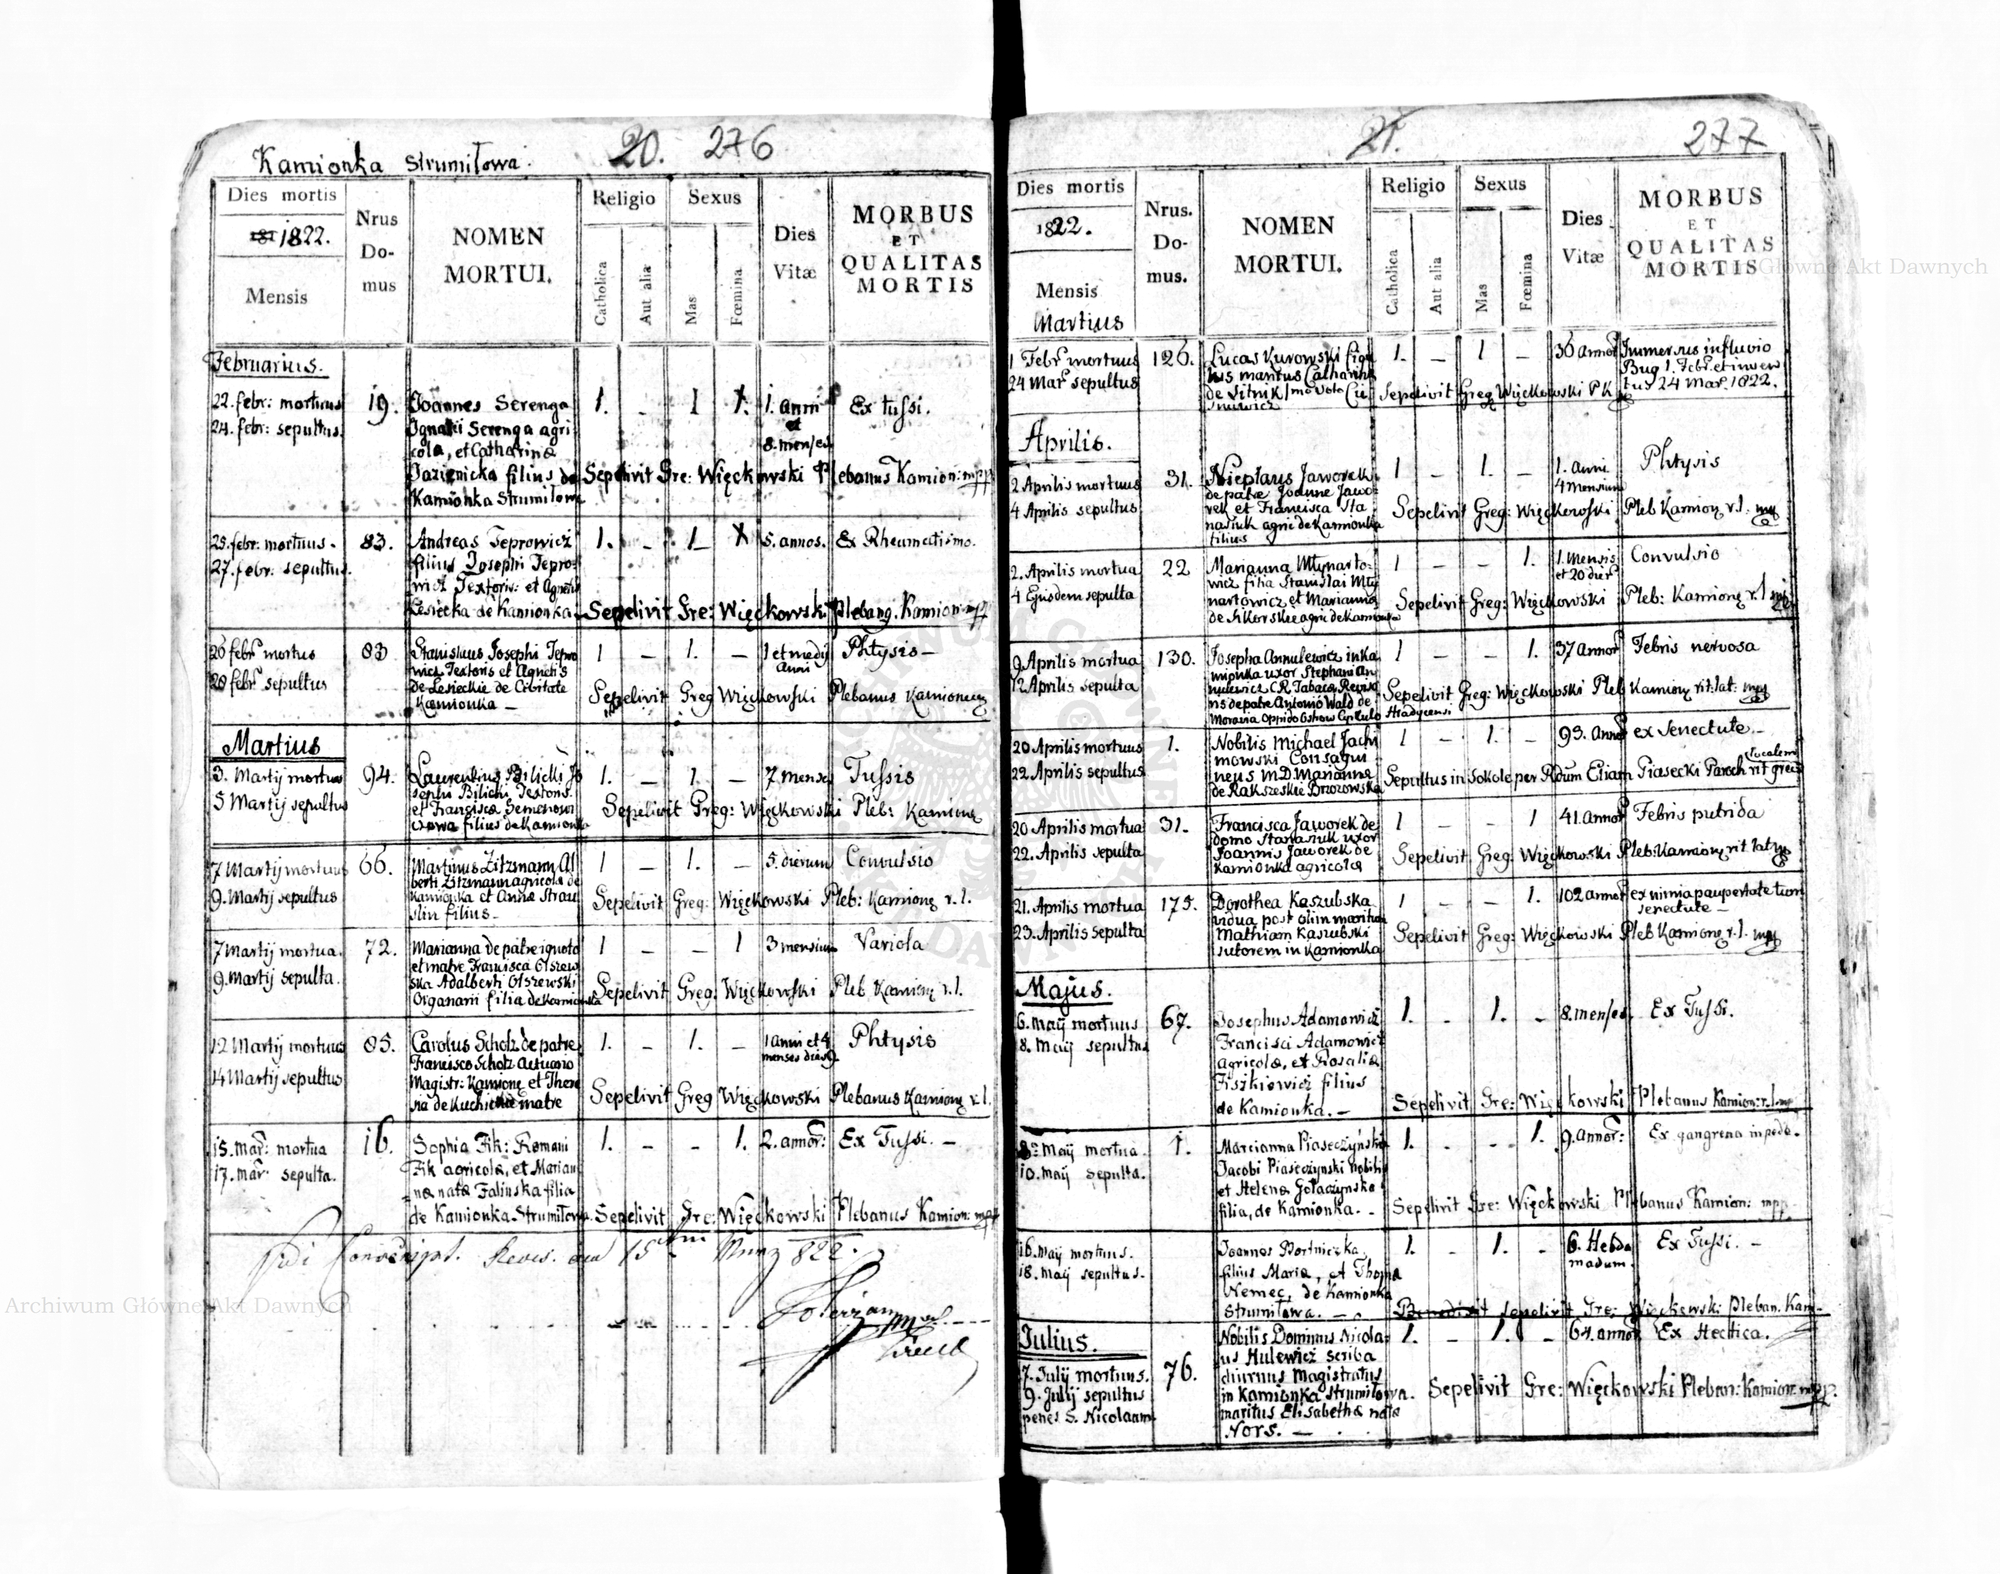 Kamionka Strumiłowa.
20. 276
Dies mortis
1822.
Mensis
Nrus
Do-
mus
NOMEN
MORTUI.
Religio
Catholica
Aut alia
Sexus
Mas
Fœmina
Dies
Vitæ
MORBUS
ET
QUALITAS
MORTIS
Februarius.
22. febr: mortuus
24. febr: sepultus.
19.
Joannes Serenga
Ignatii Serenga agri
cola, et Catharina
Jazienicka filius de
Kamionka Strumiłowa
1. - 1 1.
1. anni
et
8. menses
Ex tussi.
Sepelivit Gre: Więckowski Plebanus Kamion: mpp
25. febr: mortuus.
27. febr: sepultus.
83.
Andreas Teprowicz
filius Josephi Tepro-
wicz Textoris: et Agnetis
Lesiecka de Kamionka.
1. - 1
5. annos.
Ex Rheumatismo.
Sepelivit Gre: Więckowski Plebang. Kamion: mpp
26 febr mortus
28 febr sepultus
83
Stanislaus Josephi Tepro
wicz Textoris et Agnetis
de Lesieckie de Civitate
Kamionka —
1 - 1. -
1 et medij
Anni
Phtysis —
Sepelivit Greg Więckowski Plebanus Kamionen
Martius
3. Martij mortuus
5 Martij sepultus
94.
Laurentius Bilicki Jo
sephi Bilicki Textoris
et Francisca Semenowi
czowa filius de Kamionka
1. - 1. -
7. menses
Tussis
Sepelivit Greg: Więckowski Pleb: Kamionę
7 Martij mortuus
9. Martij sepultus
66.
Martinus Zitzmann Al
berti Zitzmann agricola de
Kamionka et Anna Strau
slin filius —
1 - 1. -
5. dierum
Convulsio
Sepelivit Greg: Więckowski Pleb: Kamionę r. l.
7 Martij mortua.
9. Martij sepulta.
72.
Marianna de patre ignoto
et matre Francisca Olszew
ska Adalberti Olszewski
Organarii filia de Kamionka
1 - - 1
3 mensium
Variola
Sepelivit Greg: Więckowski Pleb Kamionę r. l.
12 Martij mortuus
14 Martij sepultus
85.
Carolus Scholz de patre
Francisco Scholz Actuario
Magistr: Kamionę et There
sia de matre
1. - 1. -
1 Anni et 4
menses dies
Phtysis
Sepelivit Greg Więckowski Plebanus Kamionę r. l.
15. Mar: mortua
17. mar: sepulta.
16.
Sophia Fik: Romani
Fik agricola, et Marian
na nata Falinska filia
de Kamionka-Strumiłowa.
1. - - 1.
2. annor:
Ex Tussi. —
Sepelivit Gre: Więckowski Plebanus Kamion: mpp
15 822.
21. 277
Dies mortis
1822.
Mensis
Martius
Nrus.
Do-
mus.
NOMEN
MORTUI.
Religio
Catholica
Aut alia
Sexus
Mas
Fœmina
Dies
Vitæ
MORBUS
ET
QUALITAS
MORTIS
1 Febr mortuus
24 Mar sepultus
126.
Lucas Kurowski figu
lus maritus Catharina
de Litnik 1mo voto
1. - 1 -
36 annor
Immersus in fluvio
Bug 1. Febr. et inven
tus 24 Mar. 1822.
Sepelivit Greg Więckowski P K
Aprilis.
2 Aprilis mortuus
4 Aprilis sepultus
31.
Jaworek
de patre Joanne Jawo-
rek et Francisca Sta
nasiuk agri de Kamionka
filius
1 - 1. -
1. Anni
4 Mensium
Phtysis
Sepelivit Greg: Więckowski Pleb Kamionę r. l. mp
2. Aprilis mortua
4 Ejusdem sepulta
22
Marianna Młynarto-
wicz filia Stanislai Mły
nartowicz et Marianna
de Sikorskie agri de Kamionka
1 - - 1.
1. Mensis
et 20 dier
Convulsio
Sepelivit Greg: Więckowski Pleb: Kamionę r. l mp
9 Aprilis mortua
12 Aprilis sepulta
130.
Josepha Annulewicz in Ka
mionka uxor Stephani An
nulewicz CR Tabaca
de patre Antonio Wald de
Moravia Oppido
1 - - 1.
37 Annor
Febris nervosa
Sepelivit Greg: Więckowski Pleb Kamionę rit: lat: mp
Hradycensi
20 Aprilis mortuus
22. Aprilis sepultus
1.
Nobilis Michael Jachi
mowski Consagvi
neus M D Marianna
de Rakszeskie Brzozowska
1 - 1. -
93. Annor
ex Senectute —
Sepultus in Sokole per Rdum Eliam Piasecki Paroch localem rit graec
20 Aprilis mortua
22. Aprilis sepulta
31.
Francisca Jaworek de
domo Stanasiuk uxor
Joannis Jaworek de
Kamionka agricola
1 - - 1
41. Annor
Febris putrida
Sepelivit Greg: Więckowski Pleb: Kamionę rit lat mp
21. Aprilis mortua
23. Aprilis sepulta
175.
Dorothea Kaszubska
vidua post olim maritum
Mathiam Kaszubski
sutorem in Kamionka
1 - - 1.
102 annor
ex nimia paupertate tum
senectute —
Sepelivit Greg: Więckowski Pleb Kamionę r. l. mp
Majus.
6. Maij mortuus
8. Maij sepultus
67.
Josephus Adamowicz
Francisci Adamowicz
agricola, et Rosalia
Fiszkiewicz filius
de Kamionka. —
1. - 1. -
8. menses
Ex Tussi.
Sepelivit Gre: Więckowski Plebanus Kamion: r. l. mp
8. Maij mortua.
10. Maij sepulta.
1.
Marcianna Piaseczyński
Jacobi Piaseczynski nobilis
et Helena Gołaczynska
filia, de Kamionka. -
1. - - 1.
9. Annor:
Ex gangrena in pede.
Sepelivit Gre: Więckowski Plebanus Kamion: mpp.
16. Maij mortuus.
18. Maij sepultus.
Joannes Bortniczka
filius Maria, et Thoma
Nemec, de Kamionka
Strumiłowa. —
1. - 1. -
6. Hebdo
madum.
Ex Tussi. —
Benedixit sepelivit Gre: Więckowski Pleban. Kam—
Julius.
7. Julij mortuus.
9. Julij sepultus
penes S. Nicolaum
76.
Nobilis Dominus Nicola-
us Hulewicz scriba
diurnus Magistratus
in Kamionka Strumiłowa.
maritus Elisabetha nata
Nors. —
1. - 1. -
64. annor
Ex Hectica.
Sepelivit Gre: Więckowski Pleban: Kamion: mpp.
Archiwum Główne Akt Dawnych
Archiwum Główne Akt Dawnych